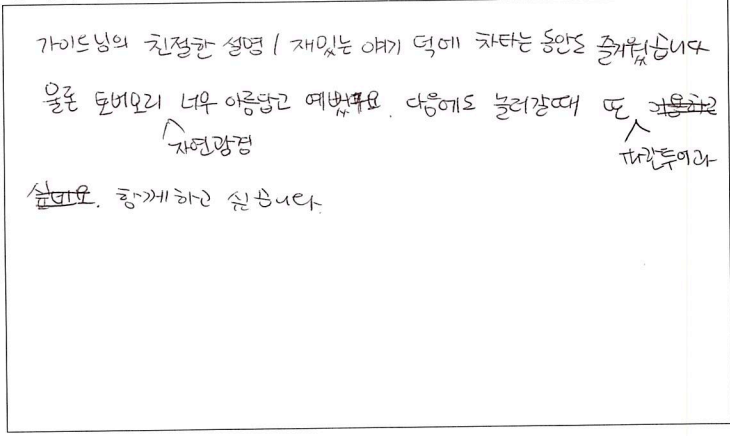 가이드님의 친절한 설명 / 재밌는 얘기 덕에 차타는 동안도 즐거웠습니다
물론 토버모리 너무 아름답고 예뻤구요. 다음에도 놀러갈때 또 이용하고
자연광경
파란투어과
싶네요. 함께하고 싶습니다.